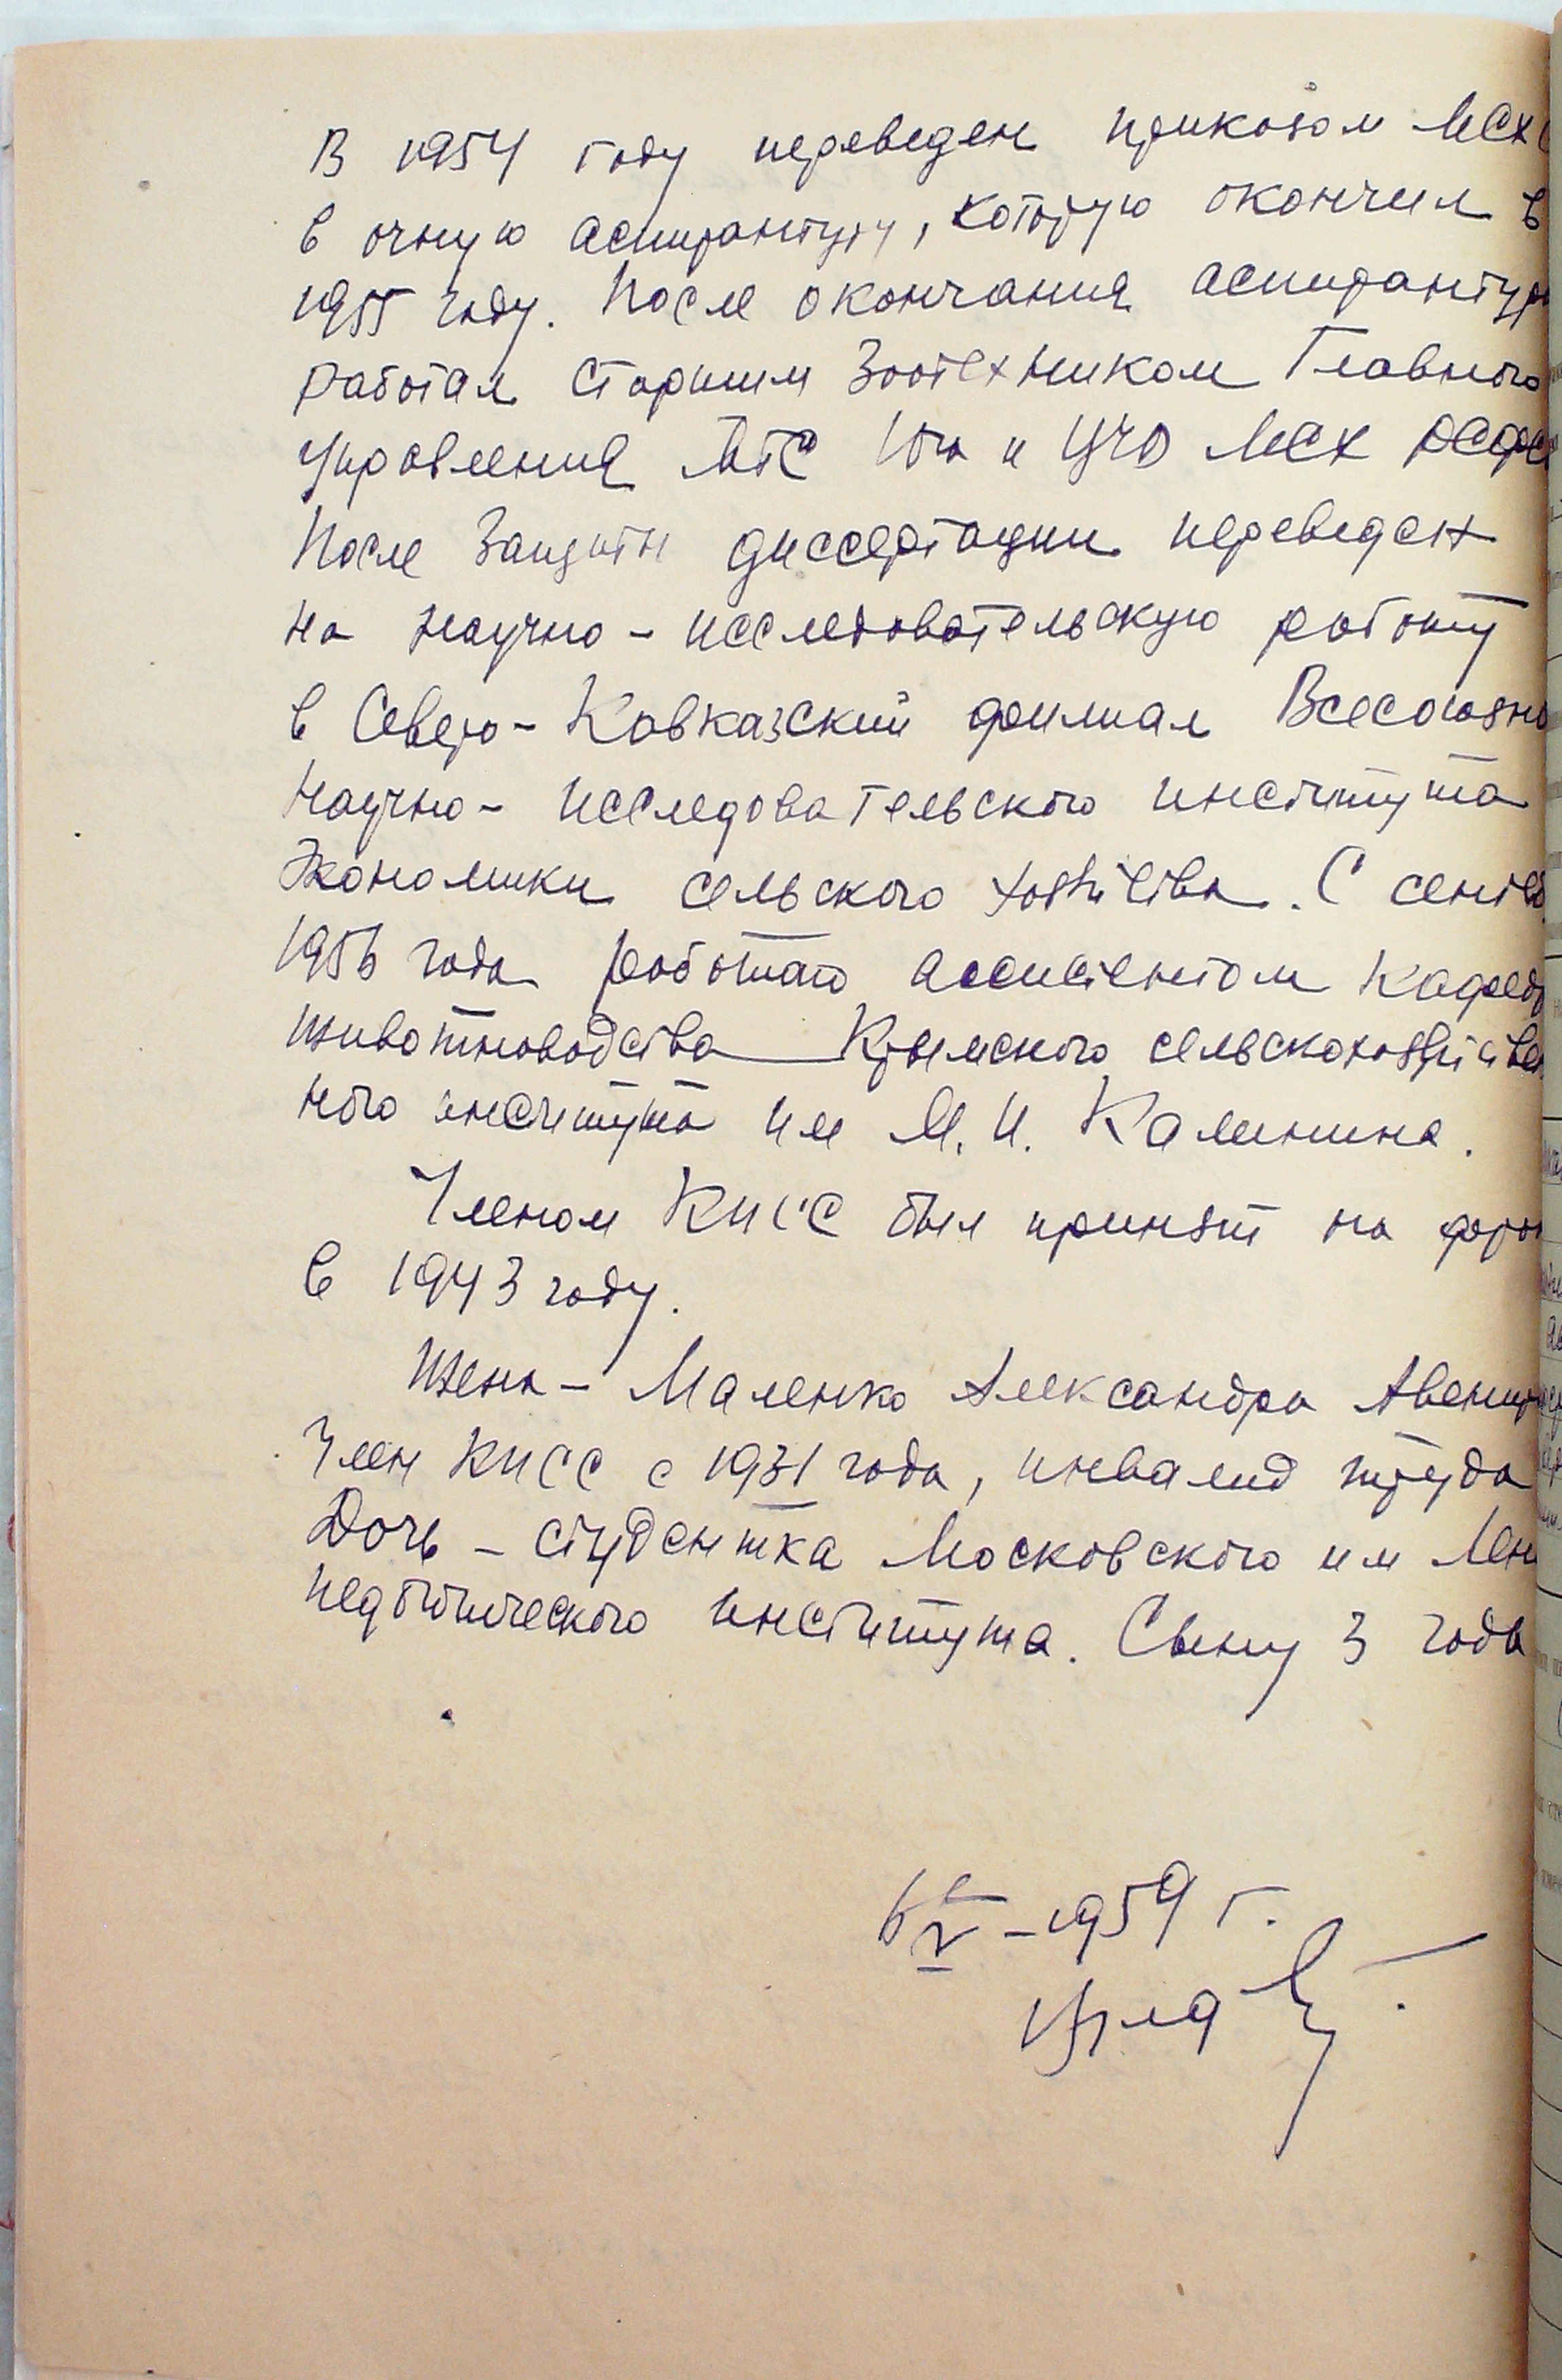 В 1954 году переведен приказом МСХ
в очную аспирантуру, которую окончил в
1955 году. После окончания аспирантуры
работал старшим зоотехником Главного
управления МТС Юга и ЦЧО МСХ РСФС
После защиты диссертации переведен
на научно-исследовательскую работу
в Северо-Кавказский филиал Всесоюзно
научно-исследовательского института
экономики сельского хозяйства. С сентяб
1956 года работаю ассистентом кафедр
животноводства Крымского сельскохозяйствен
ного института им М. И. Калинина.
Членом КПСС был принят на фрон
в 1943 году.
Жена - Маленко Александра Авенир
Член КПСС с 1931 года, инвалид труда
Дочь - студентка Московского им Лен
педагогического института. Сыну 3 года
6 V - 1959 г.